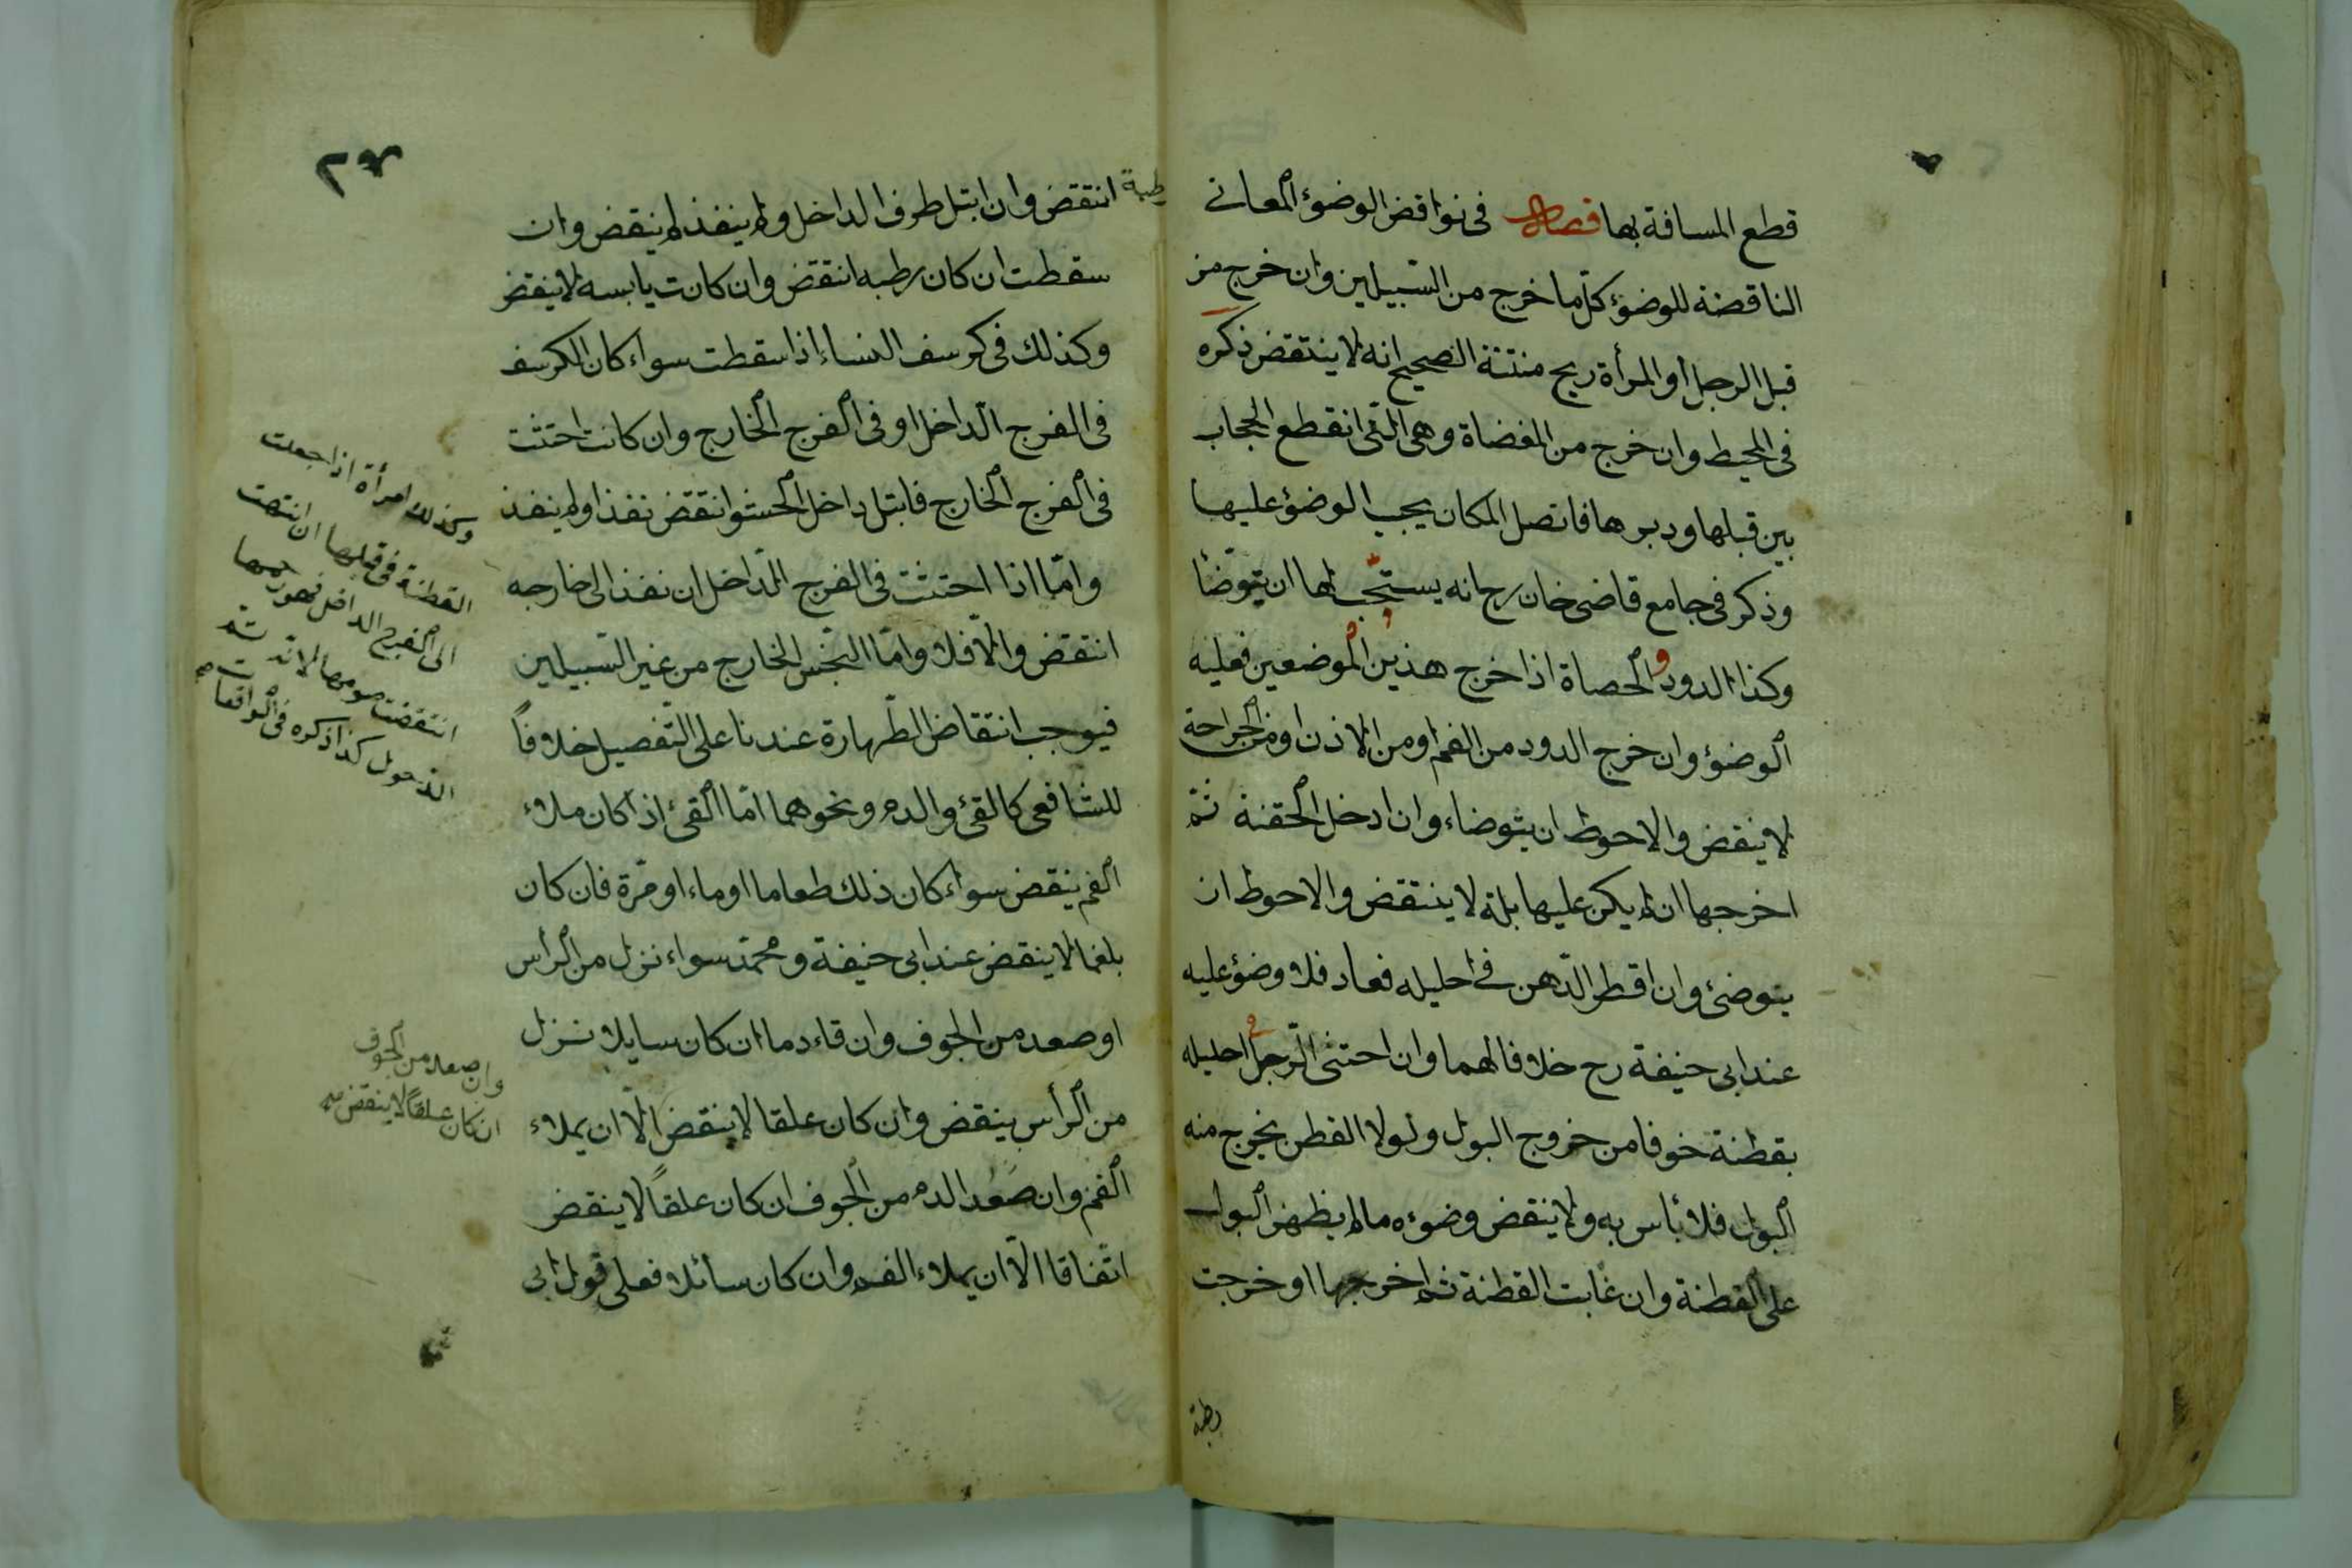 قطع المسافة بها فصل في نواقض الوضوء المعاني
الناقضة للوضوء كل ما خرج من السبيلين وان خرج من
قبل الرجل او المرأة ريح منتنة الصحيح انه لا ينتقض ذكره
في المحيط وان خرج من المفضاة وهي التي انقطع الحجاب
بين قبلها ودبرها فاتصل المكان يجب الوضوء عليها
وذكر في جامع قاضي خان رح انه يستحب لها ان يتوضأ
وكذا الدود والحصاة اذا خرج هذين الموضعين فعليه
الوضوء وان خرج الدود من الفم او من الاذن او من الجراحة
لا ينقض والاحوط ان يتوضاء وان ادخل الحقنة ثم
اخرجها ان لم يكن عليها بلة لا ينتقض والاحوط ان
يتوضئ وان اقطر الدهن في احليله فعاد فلا وضؤ عليه
عند ابي حنيفة رح خلافا لهما وان احتشى الرجل في احليله
بقطنة خوفا من خروج البول ولولا القطن يخرج منه
البول فلا بأس به ولا ينقض وضوءه ما لم يظهر البول
على القطنة وان غابت القطنة ثم اخرجها او خرجت
رطبة
رطبة انتقض وان ابتل طرف الداخل ولم ينفذ لم ينقض وان
سقطت ان كان رطبه انتقض وان كانت يابسه لا ينقض
وكذلك في كرسف النساء اذا سقطت سواء كان الكرسف
في الفرج الداخل او في الفرج الخارج وان كانت احتشت
في الفرج الخارج فابتل داخل الحشو انتقض نفذ او لم ينفذ
واما اذا احتشت في الفرج الداخل ان نفذ الى خارجه
انتقض والا فلا واما النجس الخارج من غير السبيلين
فيوجب انتقاض الطهارة عندنا على التفصيل خلافاً
للشافعي كالقئ والدم ونحوهما اما القئ اذا كان ملاء
الفم ينقض سواء كان ذلك طعاما او ماء او مرة فان كان
بلغما لا ينقض عند ابي حنيفة ومحمد سواء نزل من الرأس
او صعد من الجوف وان قاء دما ان كان سايلا نزل
من الرأس ينقض وان كان علقا لا ينقض الا ان يملاء
الفم وان صَعُد الدم من الجوف ان كان علقاً لا ينقض
اتفاقا الا ان يملاء الفم وان كان سائلا فعلى قول ابي
وكذلك امرأة اذا جعلت
القطنة في قبلها ان انتهت
الى الفرج الداخل فهو
انتقضت صومها لانه
الدخول كذا ذكره في الواقعات
وان صعد من الجوف
ان كان علقاً لا ينقض